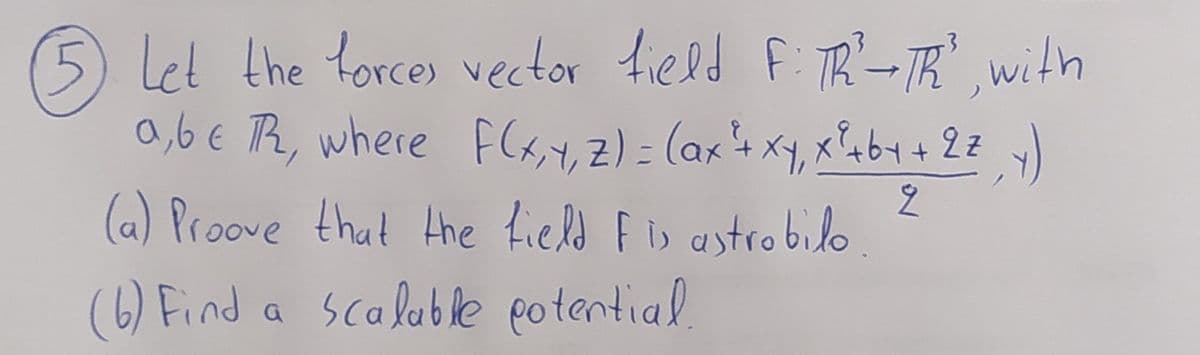 ⑤ Let the forces vector field F: ℝ³→ℝ³, with
a,b ∈ ℝ, where F(x,y,z) = (ax²+xy, (x²+by+2z)/2, y)
(a) Proove that the field F is astrobilo.
(b) Find a scalable potential.